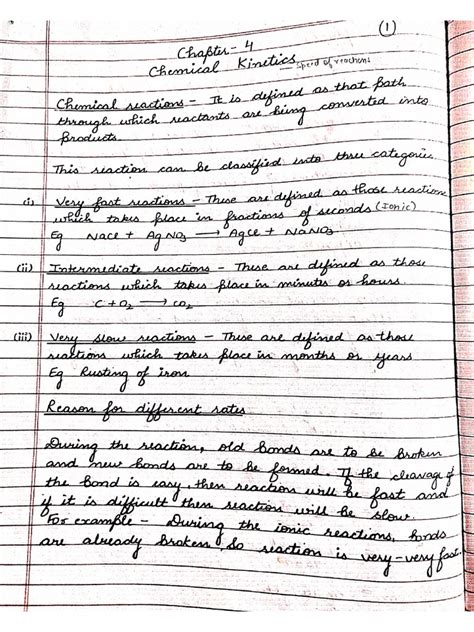 (1)
Chapter - 4
Chemical Kinetics — speed of reactions
Chemical reactions - It is defined as that path
through which reactants are being converted into
products.
This reaction can be classified into three categories.
(i) Very fast reactions - These are defined as those reactions
which takes place in fractions of seconds (Ionic)
Eg NaCl + AgNO3 ⟶ AgCl + NaNO3
(ii) Intermediate reactions - These are defined as those
reactions which takes place in minutes or hours.
Eg C + O2 ⟶ CO2
(iii) Very slow reactions - These are defined as those
reactions which takes place in months or years
Eg Rusting of iron
Reason for different rates
During the reaction, old bonds are to be broken
and new bonds are to be formed. If the cleavage of
the bond is easy, then reaction will be fast and
if it is difficult then reaction will be slow.
For example - During the ionic reactions, bonds
are already broken, so reaction is very-very fast.